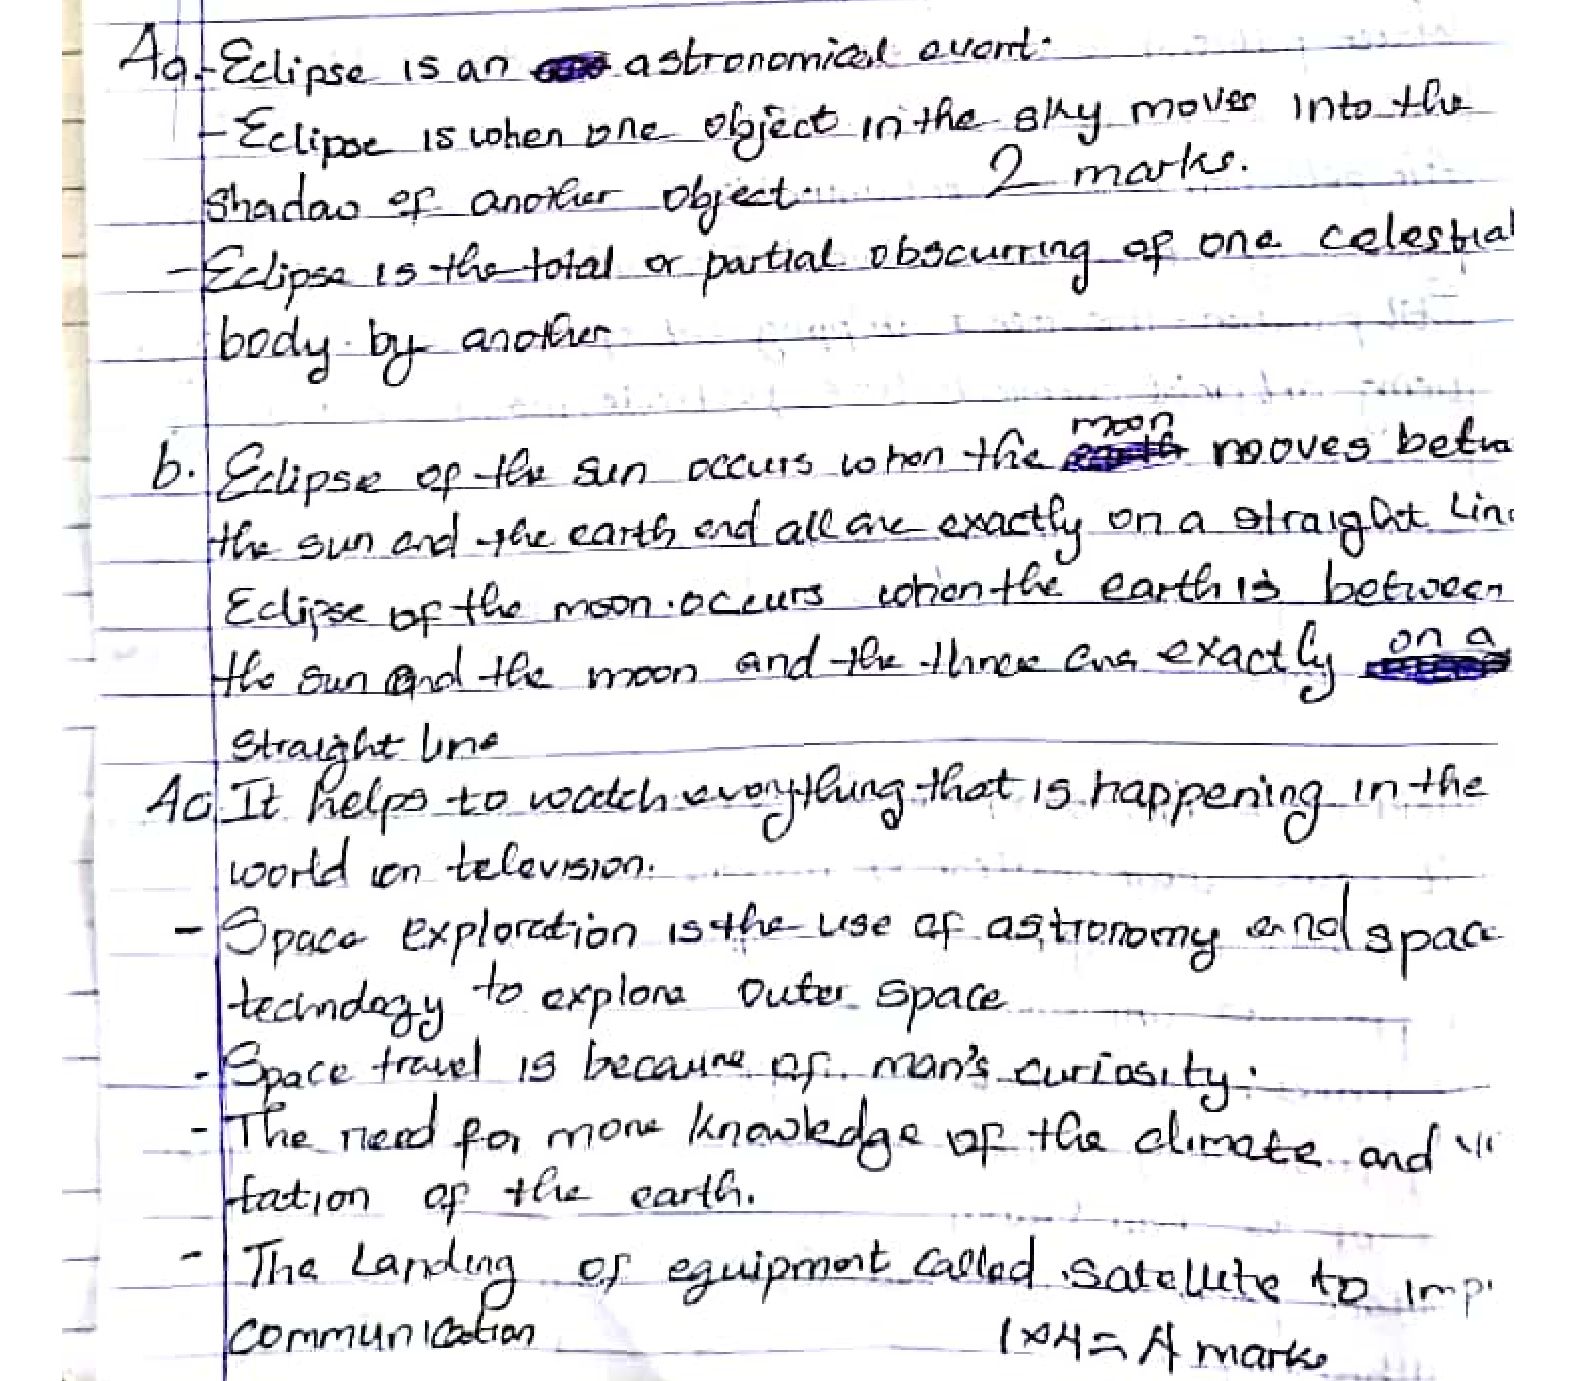 4a - Eclipse is an astronomical event.
- Eclipse is when one object in the sky moves into the
shadow of another object. 2 marks.
- Eclipse is the total or partial obscurring of one celestial
body by another
b. Eclipse of the sun occurs when the moon moves betw
the sun and the earth and all are exactly on a straight Lin
Eclipse of the moon occurs when the earth is between
the sun and the moon and the three are exactly on a
straight line
4c It helps to watch everything that is happening in the
world on television.
- Space exploration is the use of astronomy and space
technology to explore outer space
- Space travel is because of man's curiosity.
- The need for more knowledge of the climate and
tation of the earth.
- The Landing of equipment called satellite to imp
communication 1×4= 4 marks